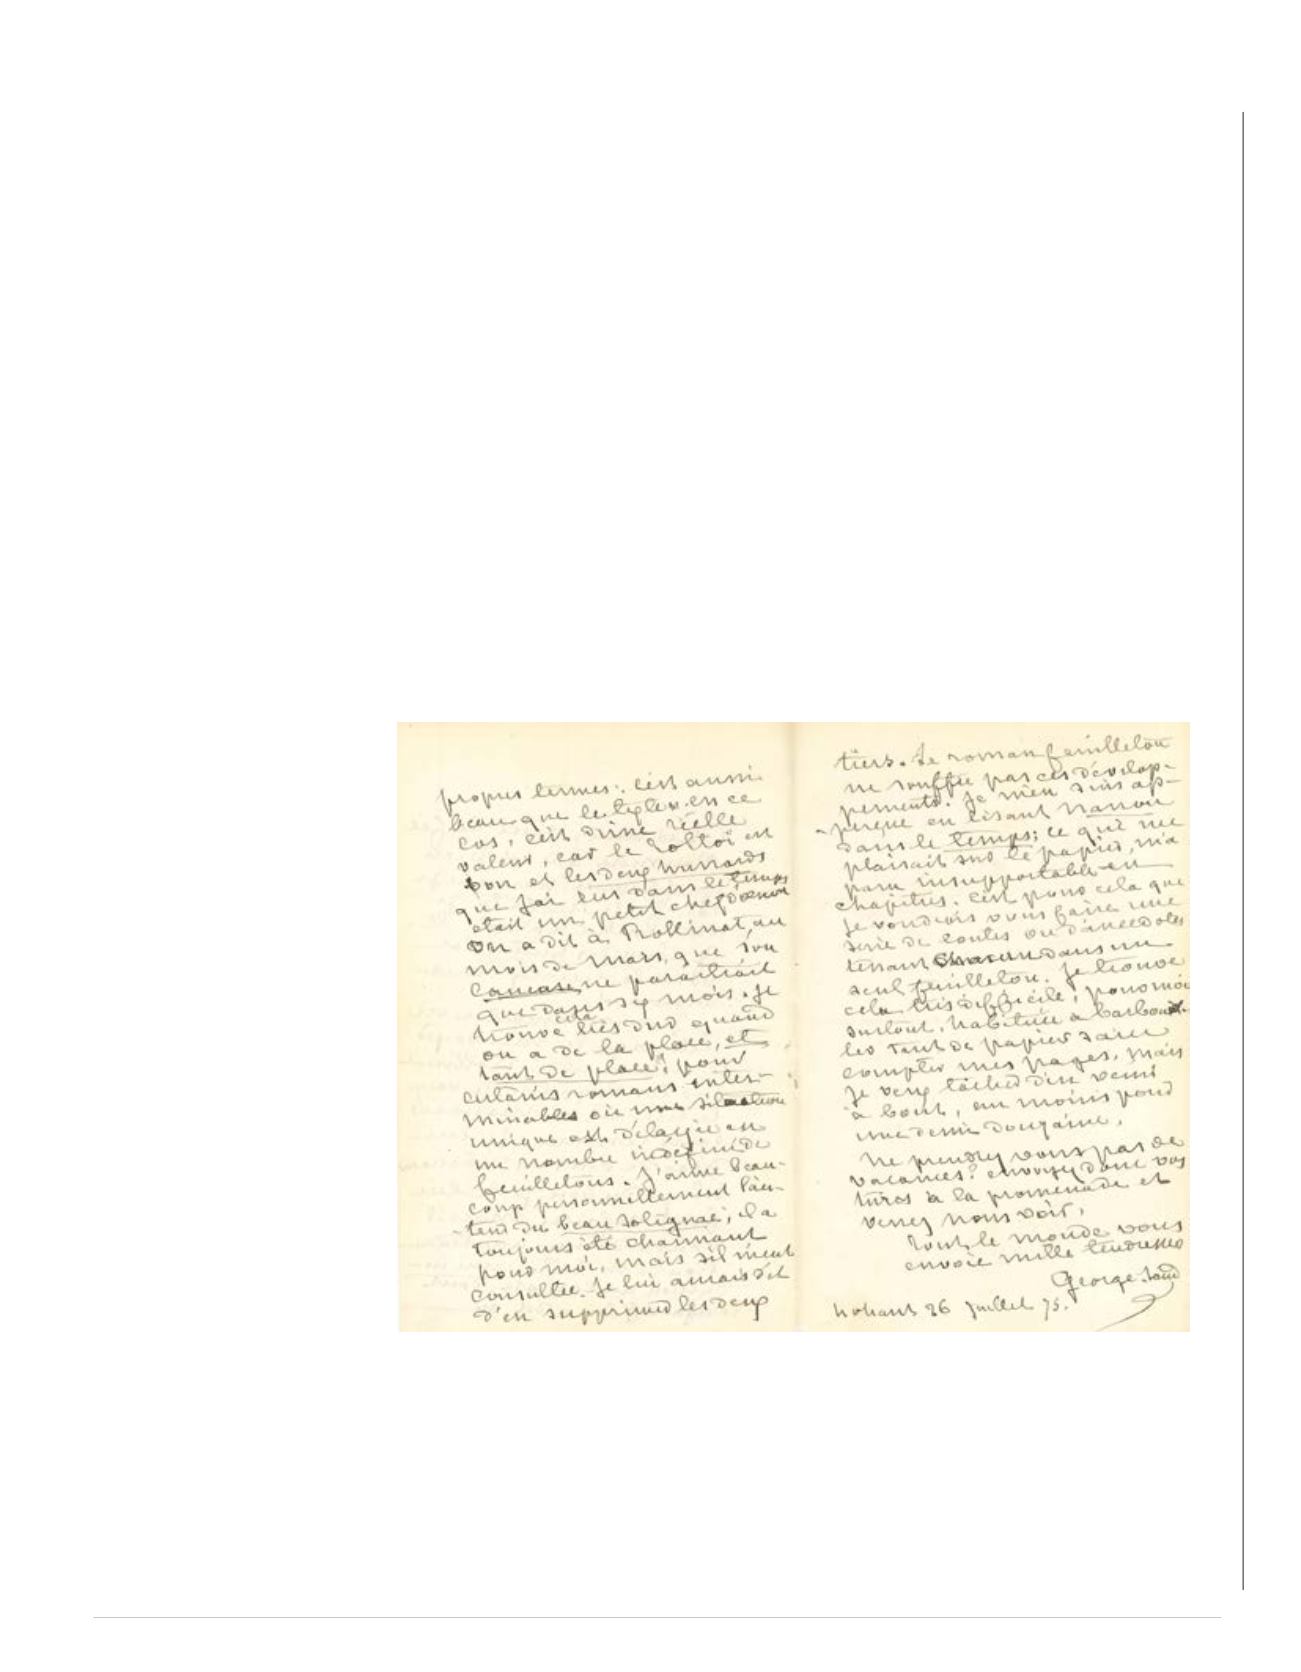 propres termes : c'est aussi
beau que le texte. en ce
cas, c'est d'une réelle
valeur, car le Tolstoï est
bon et les deux hussards
que j'ai lus dans le temps
était un petit chef d'œuvre
on a dit à Rollinat, au
mois de mars, que son
Caucase ne paraitrait
que dans six mois. Je
trouve cela très dur quand
on a de la place, et
tant de place ! pour
certains romans inter-
minables où une situation
unique est délayée en
un nombre indéfini de
feuilletons. J'aime beau-
coup personnellement l'au-
teur du beau Solignac, il a
toujours été charmant
pour moi, mais s'il m'eut
consultée. Je lui aurais dit
d'en supprimer les deux
tiers. Le roman feuilleton
ne souffre pas ces dévelop-
pements. Je m'en suis ap-
perçue en lisant Nanon
dans le temps; ce qui me
plaisait sur le papier, m'a
paru insupportable en
chapitres. c'est pour cela que
je voudrois vous faire une
serie de contes ou d'anecdotes
tenant chacun dans un
seul feuilleton. Je trouve
cela très difficile, pour moi
surtout, habituée à barbouil-
ler tant de papier sans
compter mes pages, mais
je veux tâcher d'en venir
à bout, au moins pour
une demi douzaine.
Ne prendrez vous pas de
vacances ? envoyez donc vos
turcs à la promenade et
venez nous voir,
Tout le monde vous
envoie mille tendresses
George Sand
Nohant 26 Juillet 75.